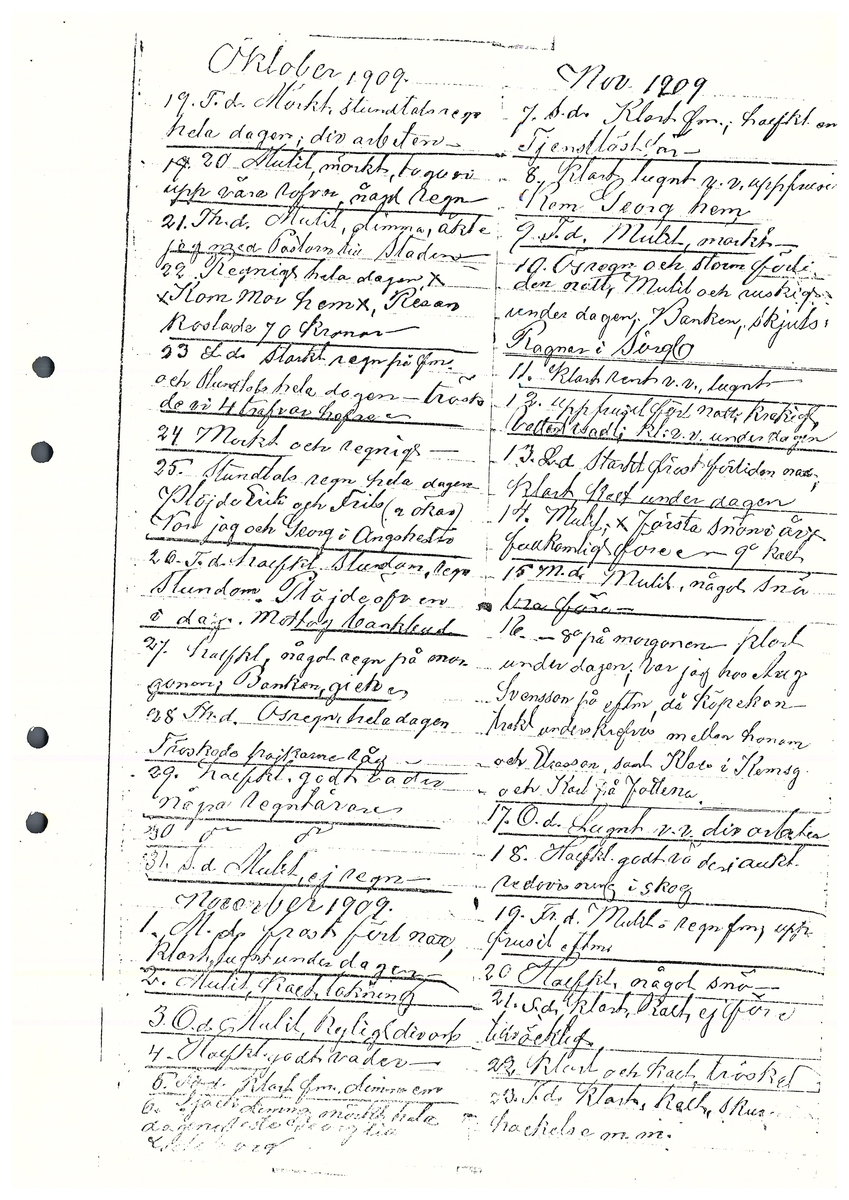 Oktober 1909.
19. T.d. Mörkt, stundtals regn
hela dagen; div arbeten
20 Mulit, mörkt, togo vi
upp våra rofvor, något regn
21. Th.d. Mulit, dimma, åkte
jag med Pastorn till Staden
22. Regnigt hela dagen x
x Kom Mor hem x, Resan
kostade 70 Kronor
23 L.d. Starkt regn på fm.
och stundtals hela dagen – trösk
de vi 4 trafvar hafre
24 Mörkt och regnigt
25. Stundtals regn hela dagen
Plöjde Erik och Frits (2 ökar)
Vor jag och Georg i
26. T.d. halfkl. stundom, regn
stundom. Plöjde öfven
i dag. Mottog
27. halfkl, något regn på mor
gonen; Banken,
28 Th.d. Ösregn, hela dagen
Tröskade pojkarne råg
29. halfkl. godt väder
några regntårar
30
31. S.d. Mulit, ej regn
November 1909.
1. M.d. frost förl natt,
klart, lugnt under dagen
2. Mulit, kallt,
3. O.d. Mulit, kyligt, div arb
4. Halfkl. godt väder
5. Fr.d. klart fm, dimma em
6. Tjock dimma mörkt, hela
dagen, reste Georg till
Nov 1909
7. S.d. Klart fm.; halfkl em
Tjenstlöst
8. Klart lugnt v.v. uppfruset
Kom Georg hem
9. T.d. Mulit, mörkt
10. Ösregn och storm förli
den natt, Mulit och ruskigt
under dagen; Banken, skjuts:
Ragnar i Sörgb
11. Klart rent v.v., lugnt
12. uppfruset förl natt,
kl: v.v. under dagen
13. L.d. Starkt frost förliden natt,
klart, kallt under dagen
14. Mulit; x Första snön i år x
fullkomligt före 9° kallt
15 M.d. Mulit, något snö
bra före
16. – 8° på morgonen klart
under dagen; var jag hos Aug
Svensson på eftm, då köpekon-
trakt underskrefvs mellan honom
och Claesson, samt Klas i Kemsg
och Karl på
17. O.d. Lugnt v.v. div arbeten
18. Halfkl. godt väder; aukt.
redovisning i skog
19. Fr.d. Mulit o regn fm, upp-
frusit eftm
20 Halfkl, något snö
21. S.d. klart, kallt, ej före
tilräckligt
22 klart och kallt, tröskat
23. T.d. klart, kallt, skur
hackelse m.m.